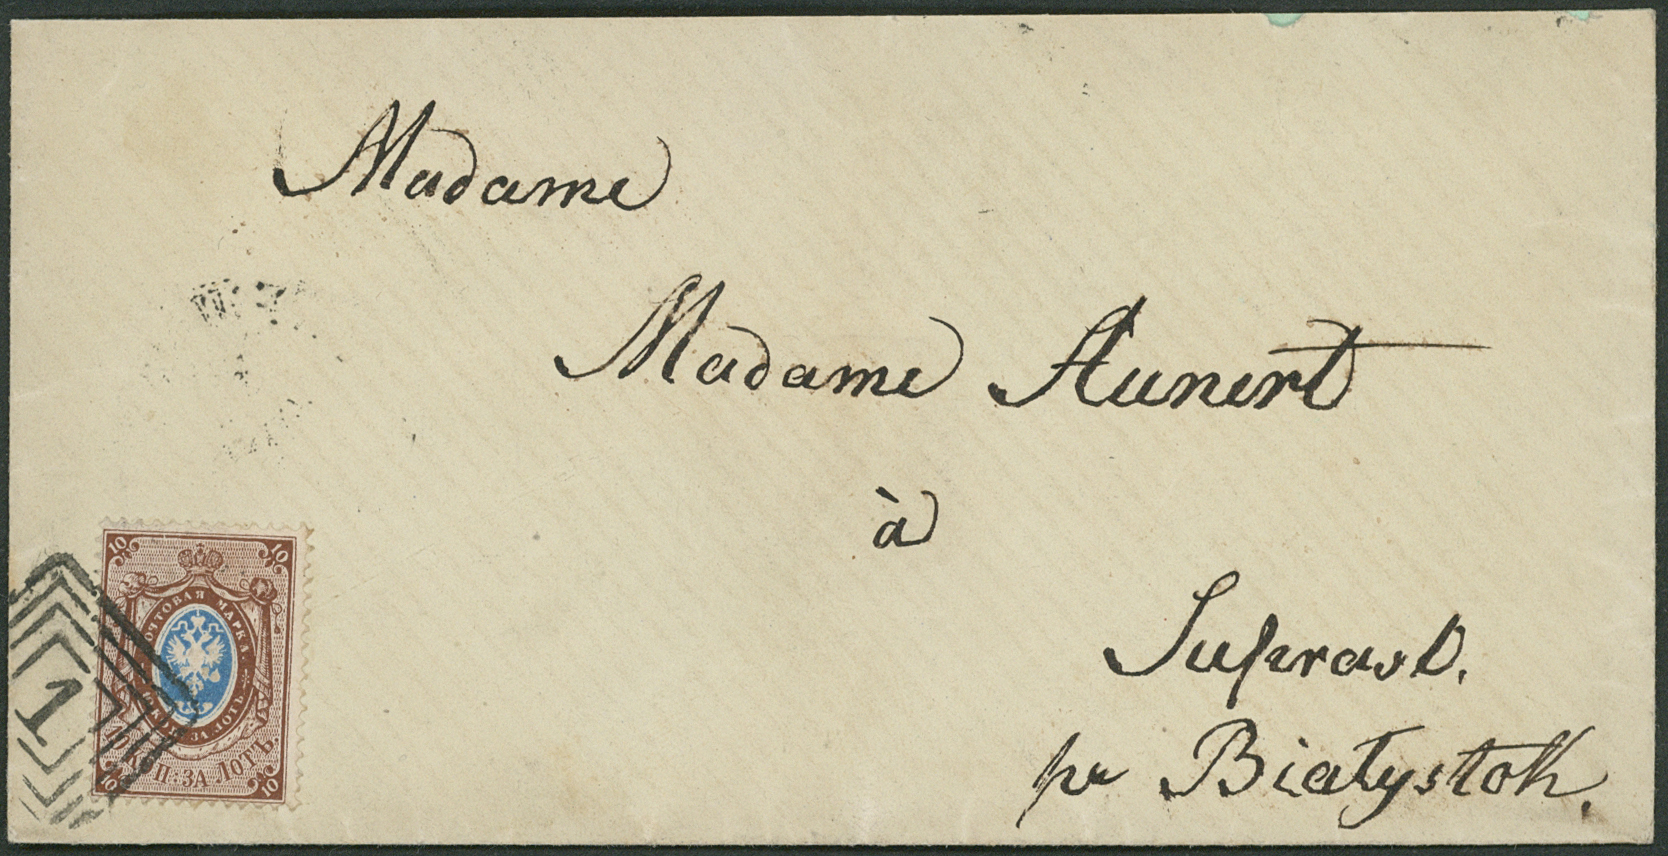 Madame
Madame Aunert
à
Suprasl.
pr Białystok.
10 10
ПОЧТОВАЯ МАРКА.
10 КОП: ЗА ЛОТЪ.
10 КОП: ЗА ЛОТЪ.
10 10
1